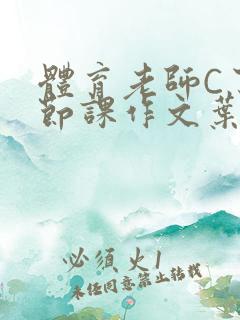 體育老師C
節課作文葉
必須火1
未經同意禁止轉載